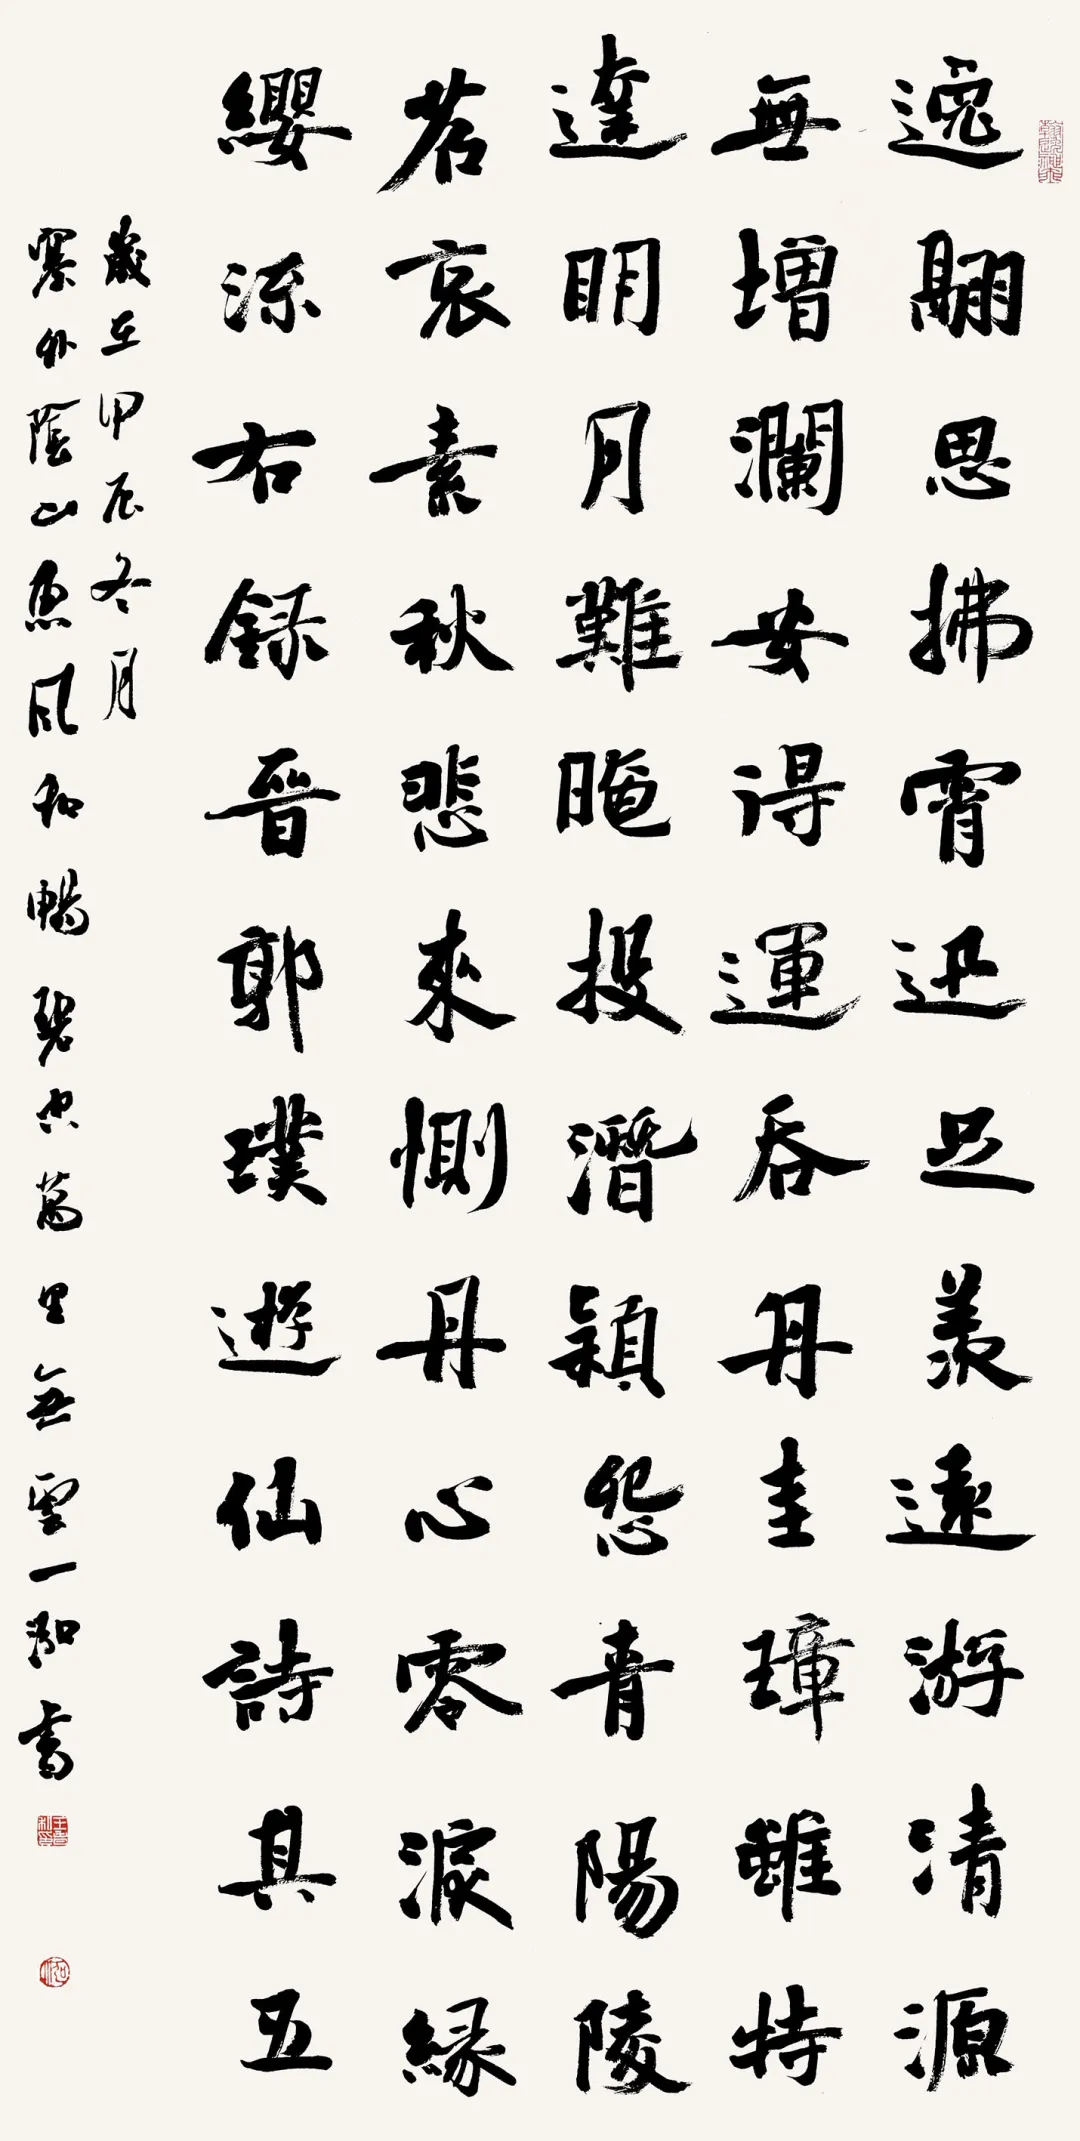 逸翮思拂霄迅足羨遠游清源
無增瀾安得運吞舟圭璋雖特
達明月難晻投潛穎怨青陽陵
苕哀素秋悲來惻丹心零淚緣
纓流右錄晉郭璞遊仙詩其五
歲在甲辰冬月
塞外陰山惠風和暢碧空萬里無雲一書